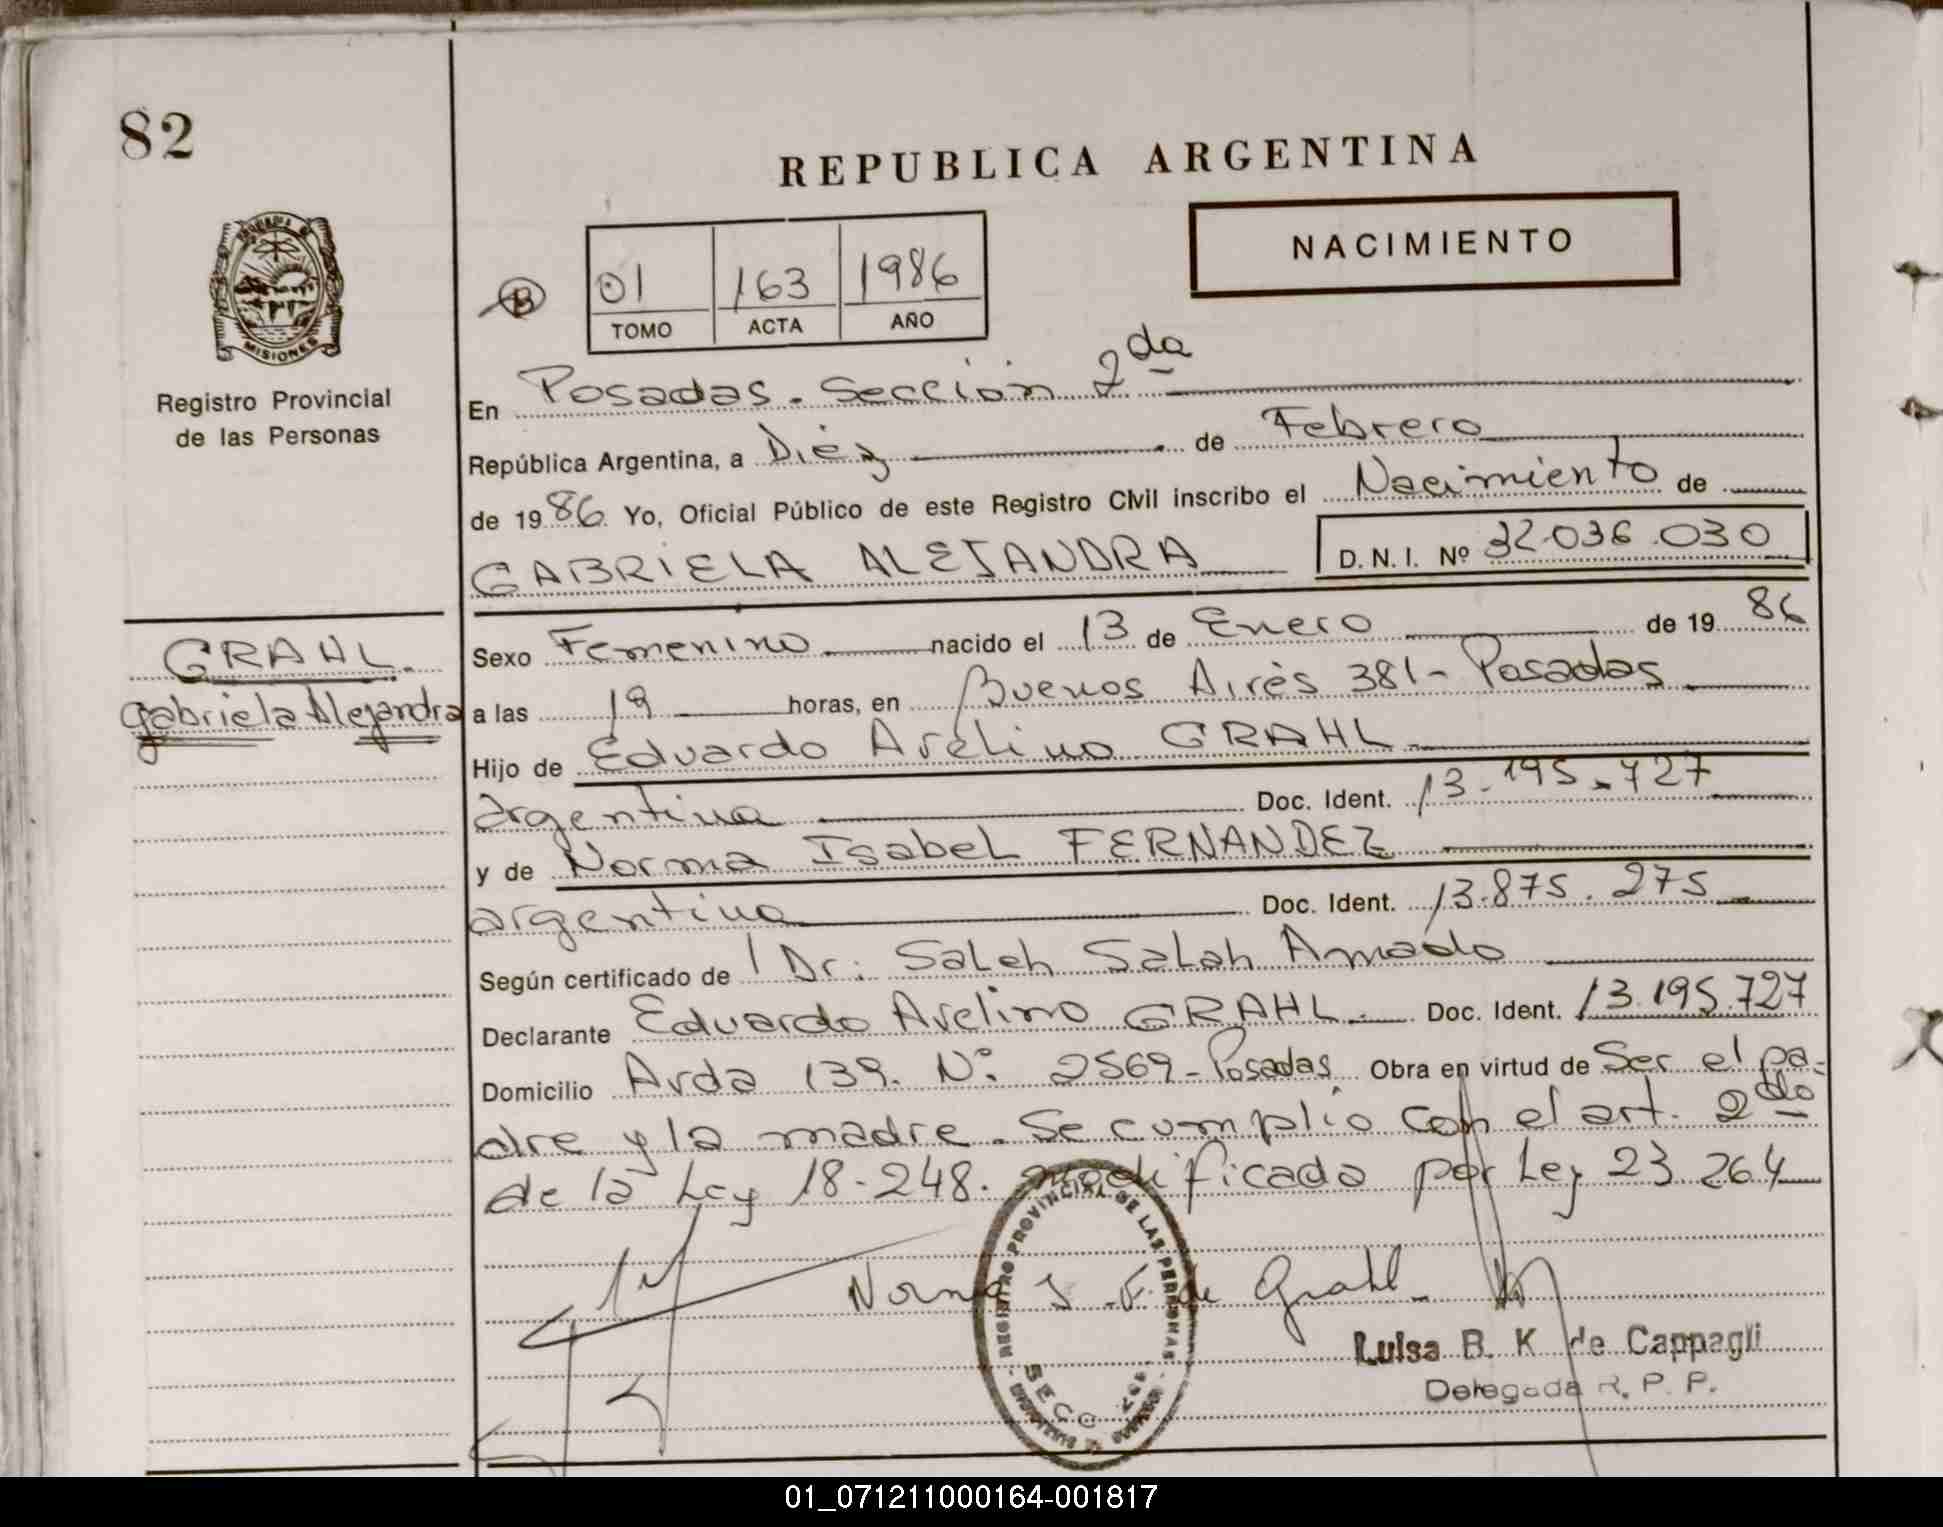 82
REPUBLICA ARGENTINA
NACIMIENTO
B
01 163 1986
TOMO ACTA AÑO
MISIONES
Registro Provincial
de las Personas
En Posadas. Sección 2da
República Argentina, a Diéz de Febrero
de 1986 Yo, Oficial Público de este Registro Civil inscribo el Nacimiento de
GABRIELA ALEJANDRA D.N.I. Nº 32.036.030
GRAHL.
Gabriela Alejandra
Sexo Femenino nacido el 13 de Enero de 1986
a las 19 horas, en Buenos Aires 381- Posadas
Hijo de Eduardo Avelino GRAHL
argentina Doc. Ident. 13.195.727
y de Norma Isabel FERNANDEZ
argentina Doc. Ident. 13.875.275
Según certificado de Dr. Saleh Salah Amado
Declarante Eduardo Avelino GRAHL. Doc. Ident. 13.195.727
Domicilio Avda 139. Nº 2569-Posadas Obra en virtud de Ser el pa-
dre y la madre. Se cumplio con el art. 2do
de la Ley 18.248. modificada por Ley 23.264
REGISTRO PROVINCIAL DE LAS PERSONAS
SECC
Norma I. F. de Grahl.
Luisa B. K. de Cappagli
Delegada R. P. P.
01_071211000164-001817